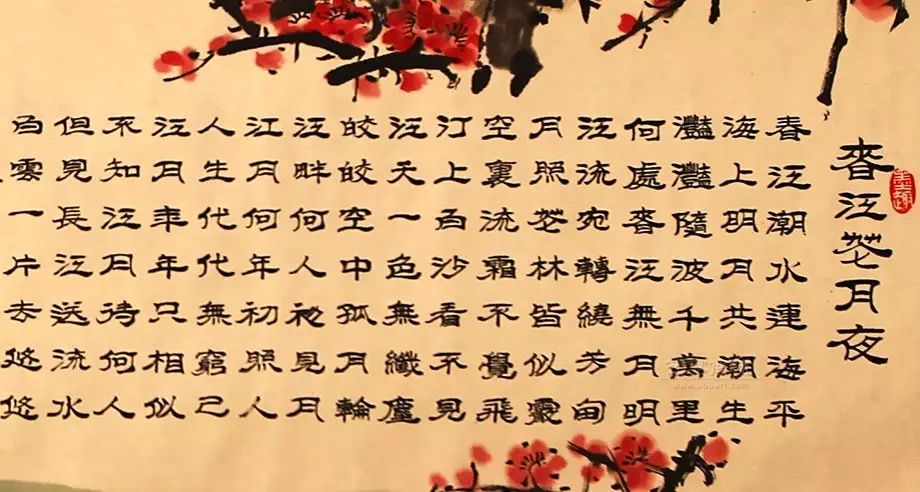 墨趣
春江花月夜
春江潮水連海平
海上明月共潮生
灩灩隨波千萬里
何處春江無月明
江流宛轉繞芳甸
月照花林皆似霰
空裏流霜不覺飛
汀上白沙看不見
江天一色無纖塵
皎皎空中孤月輪
江畔何人初見月
江月何年初照人
人生代代無窮已
江月年年只相似
不知江月待何人
但見長江送流水
白雲一片去悠悠